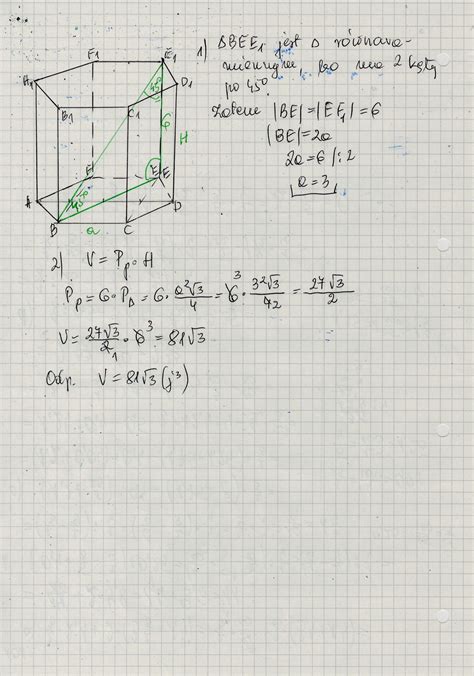 F1 E1
A1 D1
45°
B1 C1
6 H
F E E
A 45° D
B a C
1) ΔBEE₁ jest Δ równora-
miennym, bo ma 2 kąty
po 45°.
Zatem |BE|=|EE₁|=6
|BE|=2a
2a=6 /:2
a=3
2) V=Pp·H
Pp=6·PΔ=6·a²√3/4=6³·3²√3/42=27√3/2
V=27√3/2₁·6³=81√3
Odp. V=81√3 (j³)